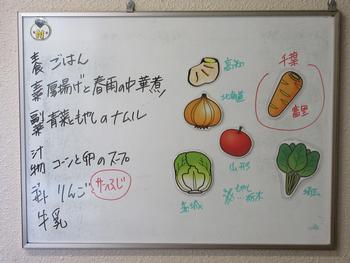 主食 ごはん
主菜 厚揚げと春雨の中華煮
副菜 青菜ともやしのナムル
汁物 コーンと卵のスープ
デザート りんご サンふじ
牛乳
高知
北海道
千葉
富里
山形
茨城
もやし
…栃木
埼玉